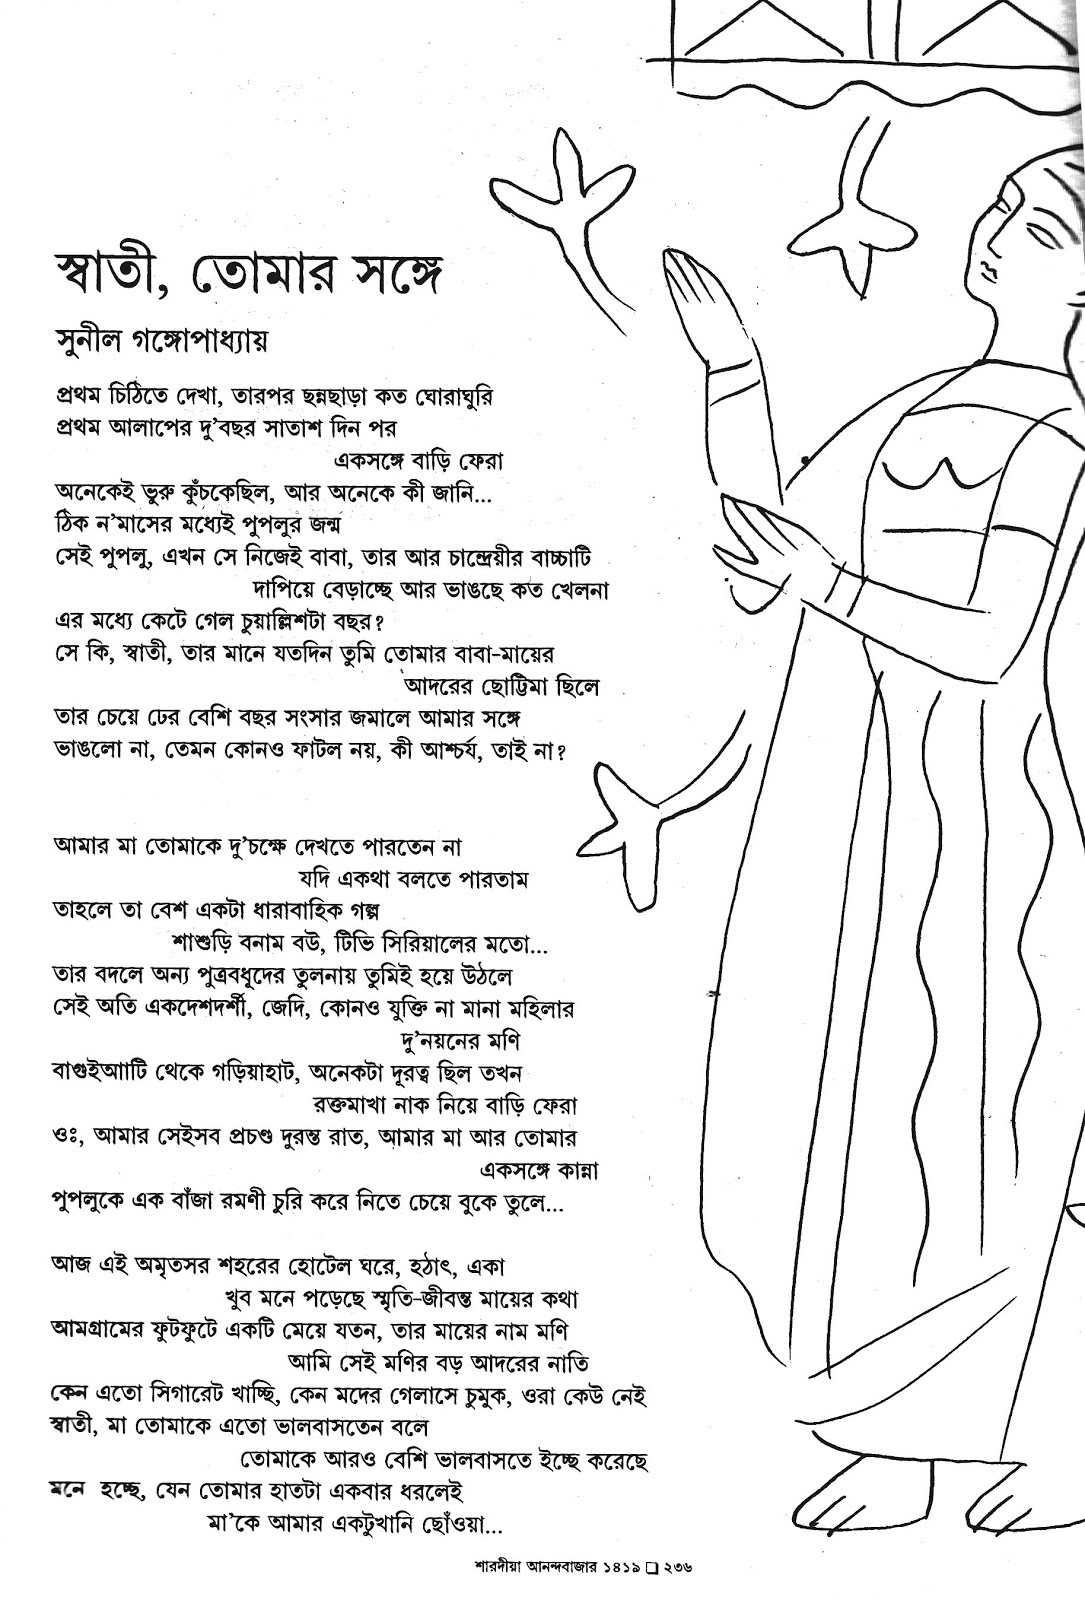 স্বাতী, তোমার সঙ্গে
সুনীল গঙ্গোপাধ্যায়
প্রথম চিঠিতে দেখা, তারপর ছন্নছাড়া কত ঘোরাঘুরি
প্রথম আলাপের দু'বছর সাতাশ দিন পর
একসঙ্গে বাড়ি ফেরা
অনেকেই ভুরু কুঁচকেছিল, আর অনেকে কী জানি...
ঠিক ন'মাসের মধ্যেই পুপলুর জন্ম
সেই পুপলু, এখন সে নিজেই বাবা, তার আর চান্দ্রেয়ীর বাচ্চাটি
দাপিয়ে বেড়াচ্ছে আর ভাঙছে কত খেলনা
এর মধ্যে কেটে গেল চুয়াল্লিশটা বছর?
সে কি, স্বাতী, তার মানে যতদিন তুমি তোমার বাবা-মায়ের
আদরের ছোট্টিমা ছিলে
তার চেয়ে ঢের বেশি বছর সংসার জমালে আমার সঙ্গে
ভাঙলো না, তেমন কোনও ফাটল নয়, কী আশ্চর্য, তাই না?
আমার মা তোমাকে দু'চক্ষে দেখতে পারতেন না
যদি একথা বলতে পারতাম
তাহলে তা বেশ একটা ধারাবাহিক গল্প
শাশুড়ি বনাম বউ, টিভি সিরিয়ালের মতো...
তার বদলে অন্য পুত্রবধূদের তুলনায় তুমিই হয়ে উঠলে
সেই অতি একদেশদর্শী, জেদি, কোনও যুক্তি না মানা মহিলার
দু'নয়নের মণি
বাগুইআাটি থেকে গড়িয়াহাট, অনেকটা দূরত্ব ছিল তখন
রক্তমাখা নাক নিয়ে বাড়ি ফেরা
ওঃ, আমার সেইসব প্রচণ্ড দুরন্ত রাত, আমার মা আর তোমার
একসঙ্গে কান্না
পুপলুকে এক বাঁজা রমণী চুরি করে নিতে চেয়ে বুকে তুলে...
আজ এই অমৃতসর শহরের হোটেল ঘরে, হঠাৎ, একা
খুব মনে পড়েছে স্মৃতি-জীবন্ত মায়ের কথা
আমগ্রামের ফুটফুটে একটি মেয়ে যতন, তার মায়ের নাম মণি
আমি সেই মণির বড় আদরের নাতি
কেন এতো সিগারেট খাচ্ছি, কেন মদের গেলাসে চুমুক, ওরা কেউ নেই
স্বাতী, মা তোমাকে এতো ভালবাসতেন বলে
তোমাকে আরও বেশি ভালবাসতে ইচ্ছে করেছে
মনে হচ্ছে, যেন তোমার হাতটা একবার ধরলেই
মা'কে আমার একটুখানি ছোঁওয়া...
শারদীয়া আনন্দবাজার ১৪১৯ □ ২৩৬